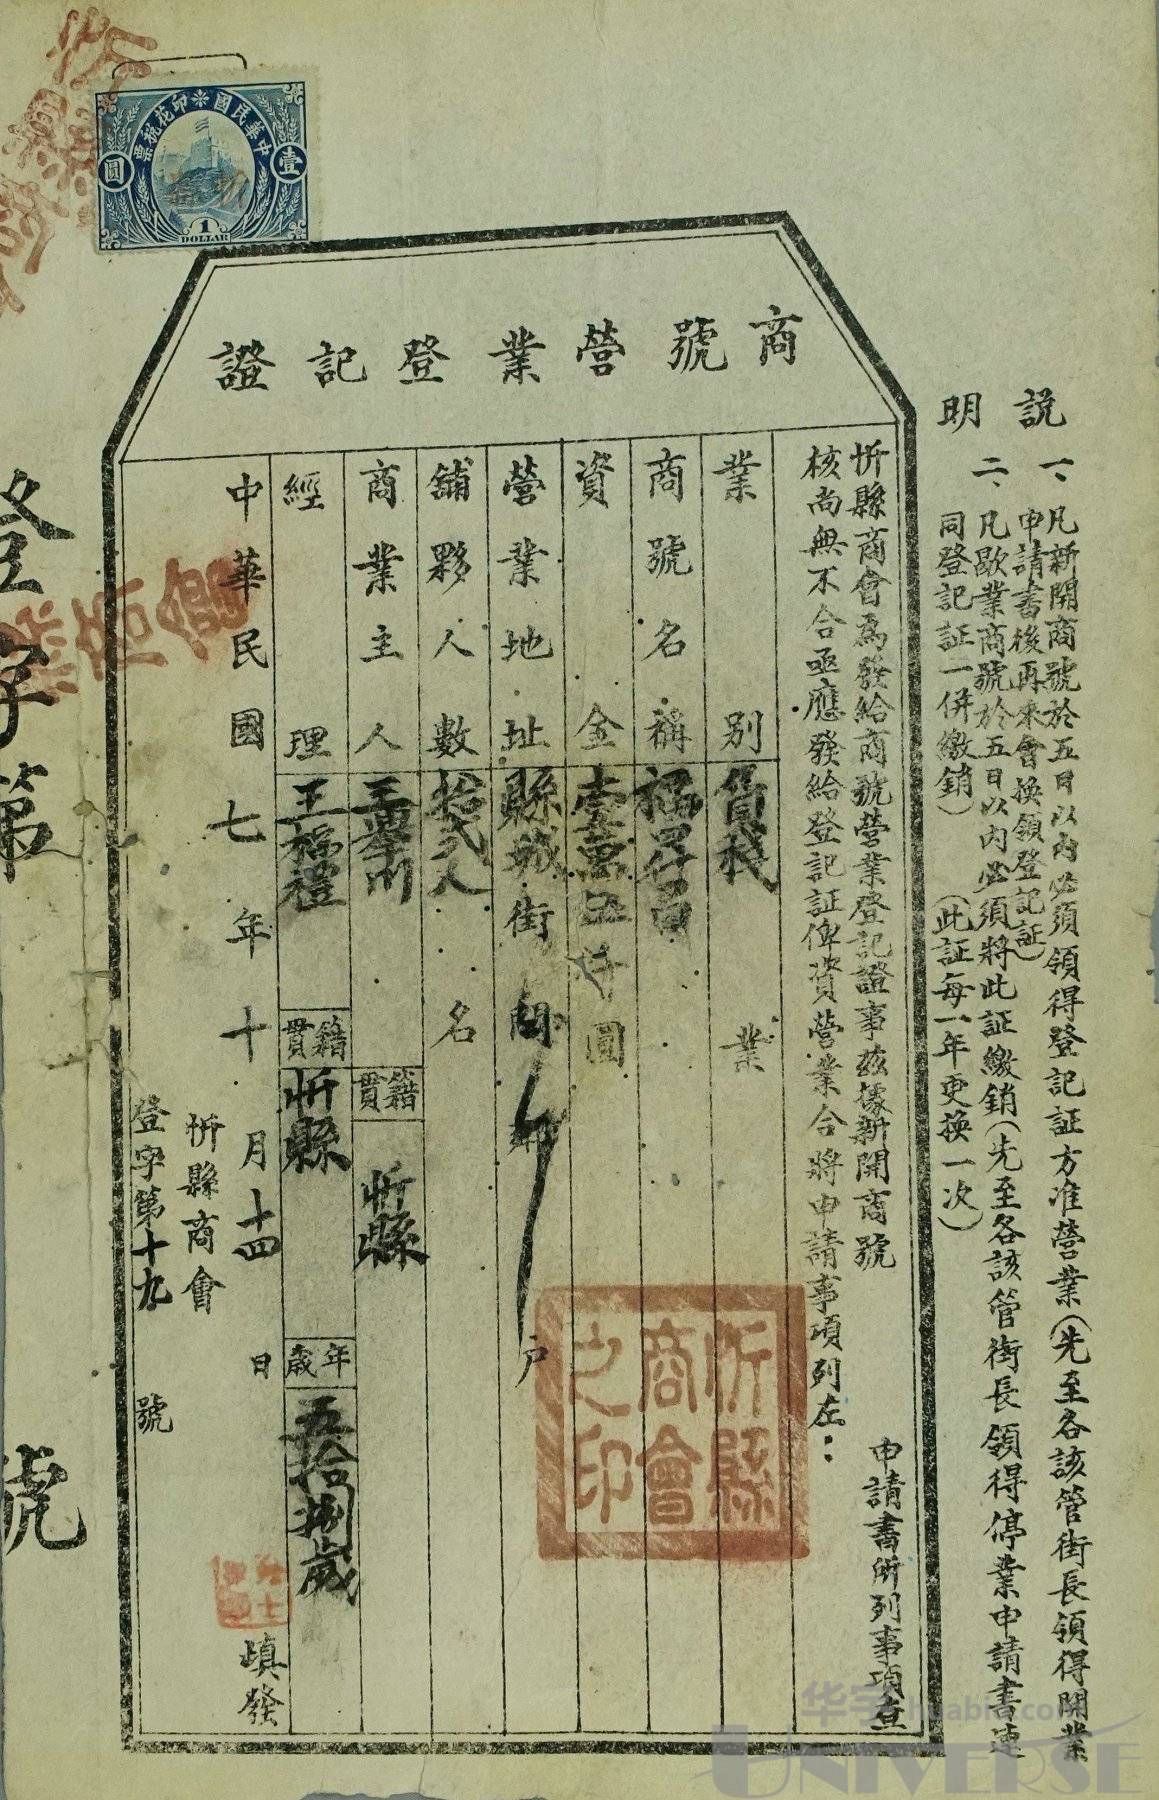 中華民國印花稅票
壹
圓
1
DOLLAR
商號營業登記證
說明
一、凡新開商號於五日以內必須領得登記証方准營業(先至各該管街長領得開業
申請書後再來會換領登記証)
二、凡歇業商號於五日以內必須將此証繳銷(先至各該管街長領得停業申請書連
同登記証一併繳銷)(此証每一年更換一次)
忻縣商會為發給商號營業登記證事茲據新開商號 申請書所列事項查
核尚無不合亟應發給登記証俾資營業合將申請事項列左：
業別 貨棧業
商號名稱
資金 壹萬伍仟圓
營業地址 縣城街 戶
舖夥人數 拾弍人名
商業主人 籍貫 忻縣
經理 王福禮 籍貫 忻縣 年歲 五拾捌歲
中華民國七年十月十四日 填發
忻縣商會
登字第十九號
忻縣商會之印
登字第 號
華宇 huabid.com
UNIVERSE